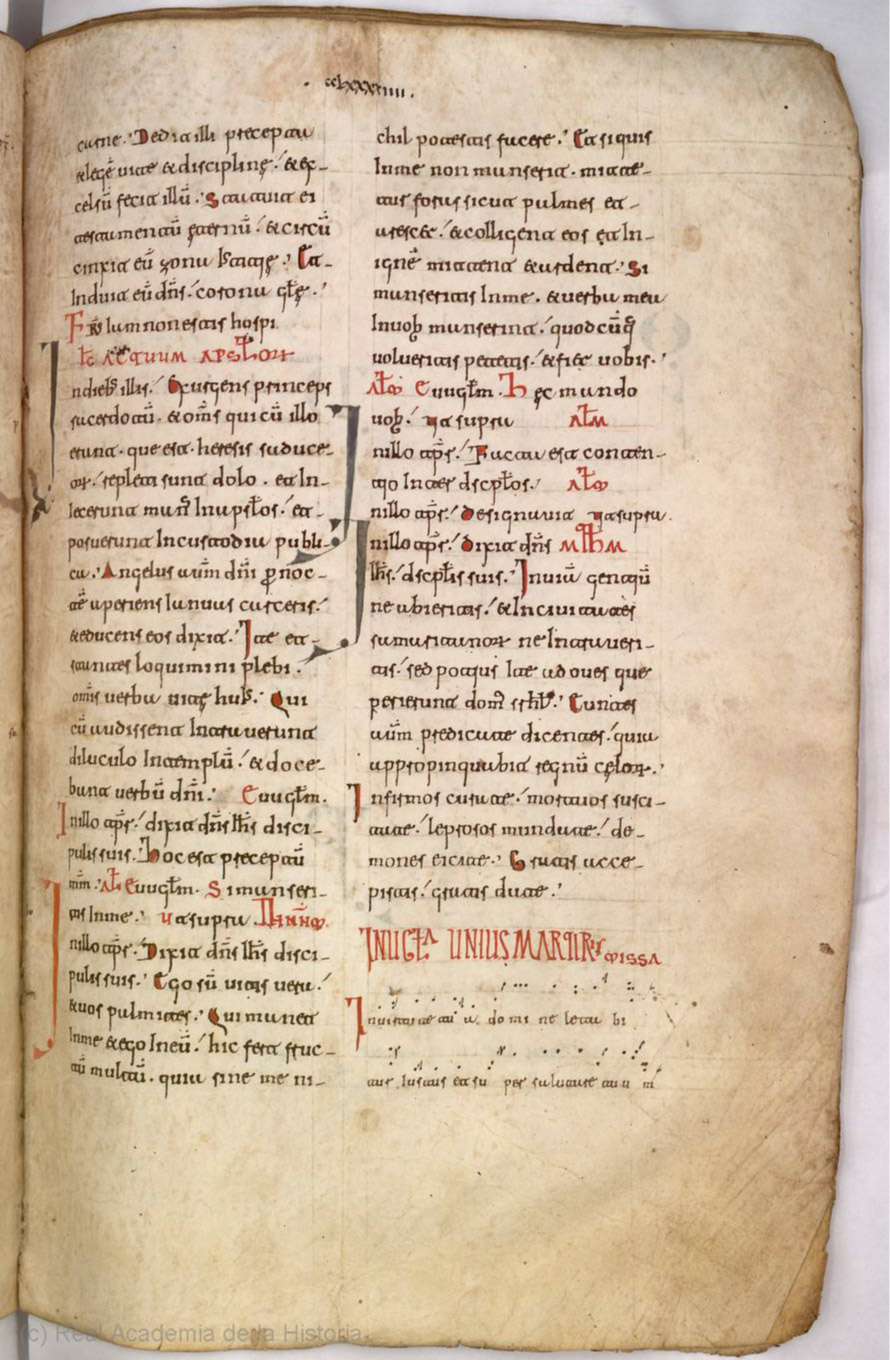 · cclxxxiiii ·
carne. Dedit illi precepta
& legẽ uite & disciplinę. & ex-
celsũ fecit illũ. Statuit ei
testamentũ ęternũ. & circũ
cinxit eũ zona
Induit eũ dñs. coronã glę.
lum non estis hospi
ndieb illis. Exurgens princeps
sacerdotũ. & oms qui cũ illo
erant. que est heresis saduce-
or. repleti sunt dolo. et In-
iecerunt man Inapslos. et
posuerunt Incustodia publi-
ca. Angelus aũm dni p noc-
tẽ aperiens Ianuas carceris.
& educens eos dixit. Ite et
stantes loquimini plebi.
omis uerba uitę huĩ. Qui
cũ audissent Intrauerunt
diluculo Intemplũ. & doce-
bant uerbũ dni. Euuglm.
Inillo tprs. dixit dns Ihs disci-
pulis suis. Hoc est preceptũ
mm. Euuglm. Simanseri-
tis Inme. ut supra
nillo tprs. Dixit dns Ihs disci-
pulis suis. Ego sũ uitis uera.
& uos palmites. Qui manet
Inme & ego Ineũ. hic fert fruc-
tũ multũ. quia sine me ni-
chil potestis facere. Et siquis
Inme non manserit. mitte-
tur foras sicut palmes et
arescet. & colligent eos et In-
ignẽ mittent & ardent. Si
manseritis Inme. & uerba mea
Inuob manserint. quodcũq
uolueritis petetis. & fiet uobis.
Euuglm. Hęc mando
uob. ut supra
nillo tprs. Facta est conten-
tio Inter dscplos.
nillo tprs. Designauit ut supra.
nillo tprs. dixit dns
Ihs. dscplis suis. Inuiã gentiũ
ne abieritis. & Inciuitates
samaritanor ne Intraueri-
tis. sed potius Ite ad oues que
perierunt dom srhl. Euntes
aũm predicate dicentes. quia
appropinquabit regnũ cęlor.
Infirmos curate. mortuos susci-
tate. leprosos mundate. de-
mones eicite. Gratis acce-
pistis. gratis date.
UNIUS MARTIRIS MISSA
do mi ne letabi
tur Iustus et su per salutare tuum
(c) Real Academia de la Historia